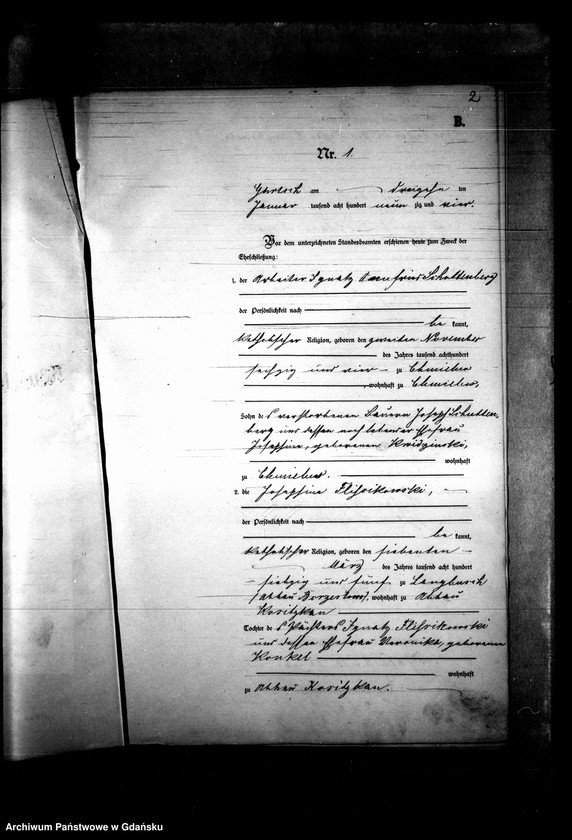 2
B.
Nr. 1.
am dreizehn ten
Januar tausend acht hundert neun zig und vier.
Vor dem unterzeichneten Standesbeamten erschienen heute zum Zweck der
Eheschließung:
1. der Arbeiter Ignatz
der Persönlichkeit nach
be kannt,
katholischer Religion, geboren den zweiten November
des Jahres tausend achthundert
sechzig und vier zu Chmielno
, wohnhaft zu Chmielno,
Sohn des verstorbenen Bauern Joseph
berg und dessen noch lebender Ehefrau
Josephine, geborenen
wohnhaft
zu Chmielno.
2. die Josephine Flisikowski,
der Persönlichkeit nach
be kannt,
katholischer Religion, geboren den siebenten
März des Jahres tausend acht hundert
siebzig und fünf zu
, wohnhaft zu Abbau
Tochter des Pächters Ignatz Flisikowski
und dessen Ehefrau Veronika, geborenen
Konkel
wohnhaft
zu Abbau
Archiwum Państwowe w Gdańsku